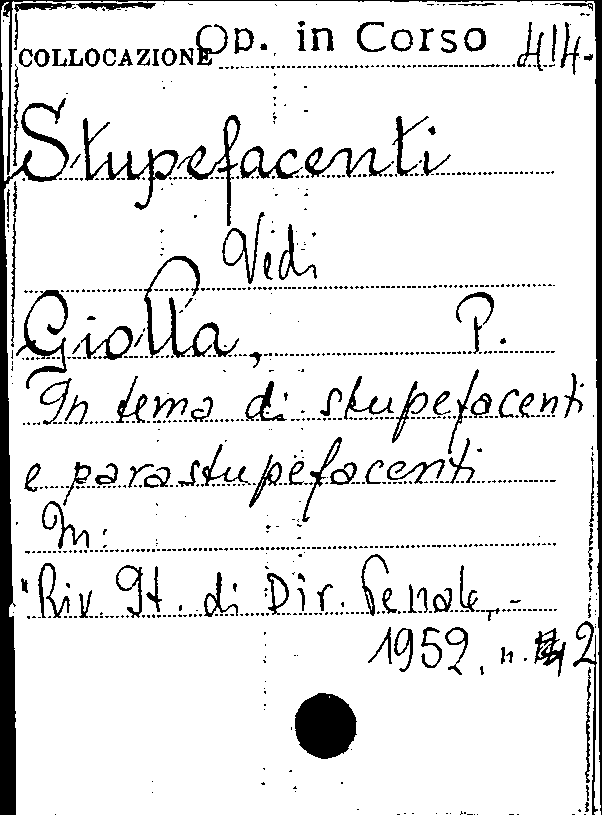 COLLOCAZIONE Op. in Corso 414-
Stupefacenti
Vedi
Giolla, P.
In tema di stupefacenti
e parastupefacenti
In:
"Riv. It. di Dir. Penale, -
1952, n. 2